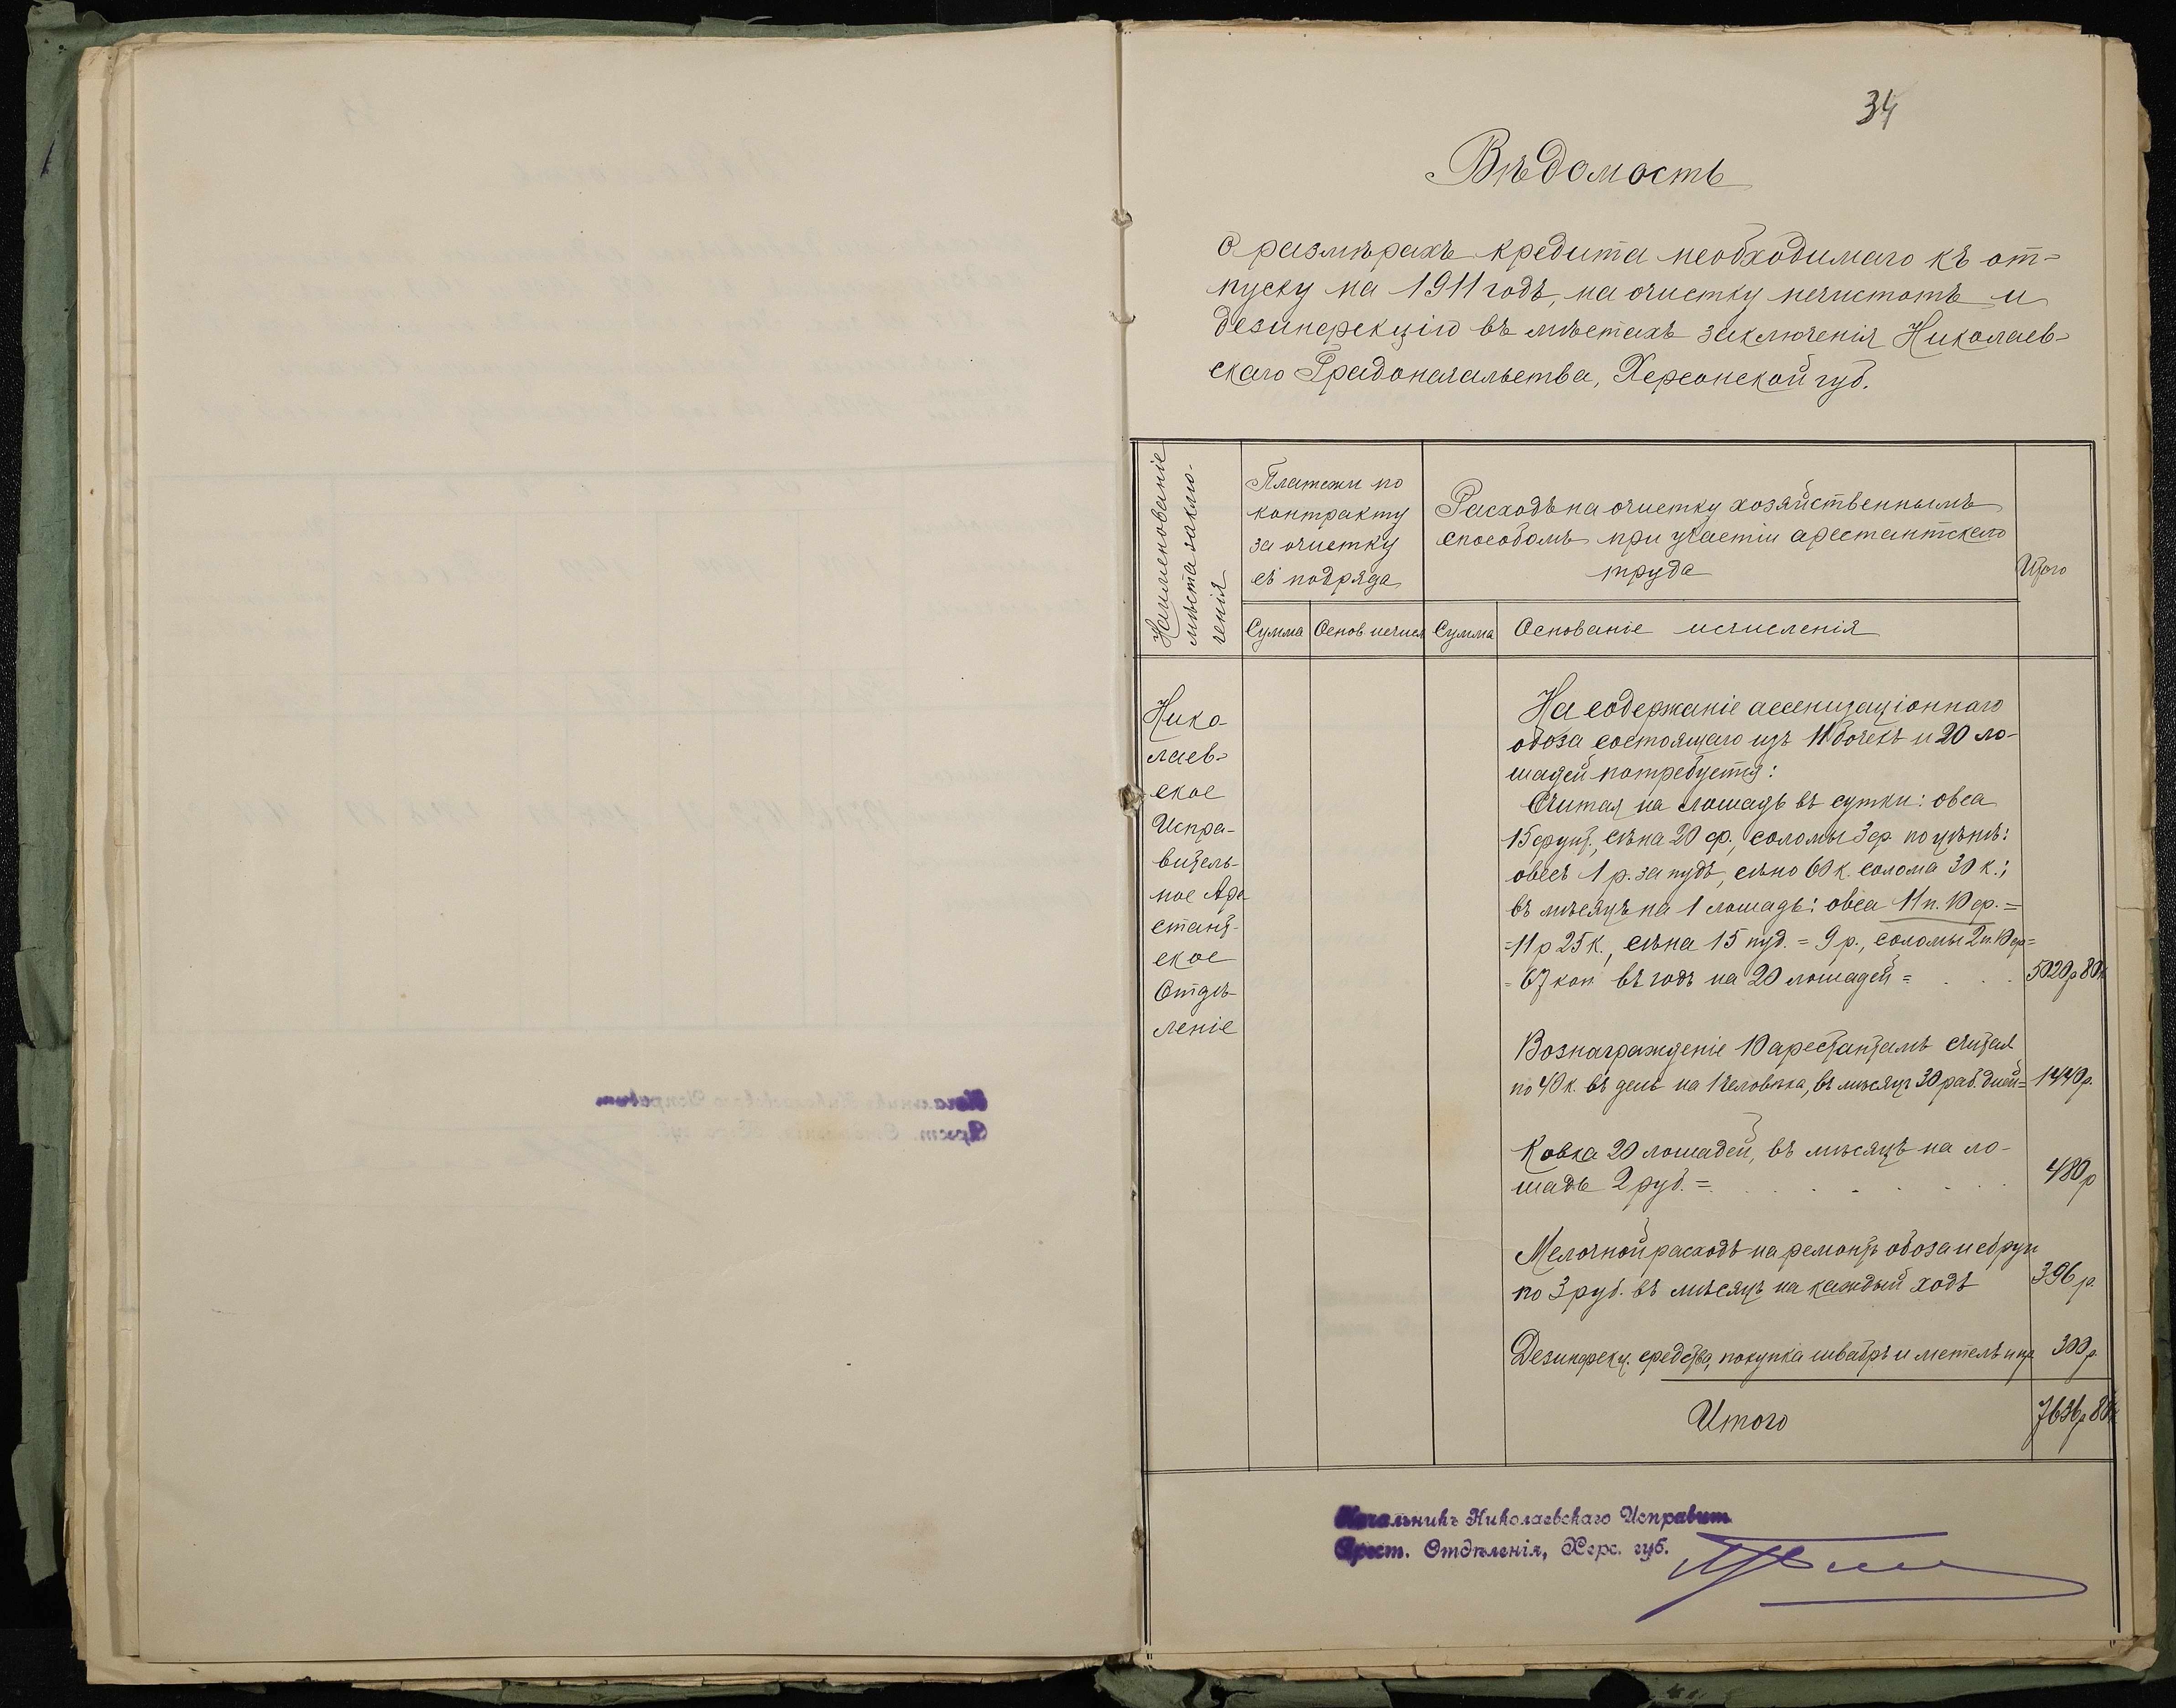 34
Вѣдомость
о размѣрахъ кредита необходимаго къ от-
пуску на 1911 годъ, на очистку нечистотъ и
дезинфекцію въ мѣстахъ заключенія Николаев-
скаго Градоначальства, Херсонской губ.
Наименованіе
мѣста заклю-
ченія
Платежи по
контракту
за очистку
съ подряда
Расходъ на очистку хозяйственнымъ
способомъ при участіи арестантскаго
труда
Итого
Сумма
Основ исчисл
Сумма
Основаніе исчисленія
Нико-
лаев-
ское
Испра-
витель-
ное Аре
стант-
ское
Отдѣ-
леніе
На содержаніе ассенизаціоннаго
обоза состоящаго изъ 11 бочекъ и 20 ло-
шадей потребуется:
Считая на лошадь въ сутки: овса
15 фунт., сѣна 20 ф., соломы 3 ф. по цѣнѣ:
овесъ 1 р. за пудъ, сѣно 60 к. солома 30 к.;
въ мѣсяцъ на 1 лошадь: овса 11 п. 10 ф. =
=11 р 25 к., сѣна 15 пуд. = 9 р., соломы 2 п. 10 ф=
= 67 коп въ годъ на 20 лошадей = . . . 5020 р 80 к
Вознагражденіе 10 арестантамъ считая
по 40 к. въ день на 1 человѣка, въ мѣсяцъ 30 раб. дней= 1440 р.
Ковка 20 лошадей, въ мѣсяцъ на ло-
шадь 2 руб. = . . . . . . . 480 р
Мелочной расходъ на ремонтъ обоза и сбруи
по 3 руб. въ мѣсяцъ на каждый ходъ 396 р.
Дезинфекц. средства, покупка швабръ и метелъ и пр 300 р.
Итого 7636 р 80 к
Начальникъ Николаевскаго Исправит.
Арест. Отдѣленія, Херс. губ.